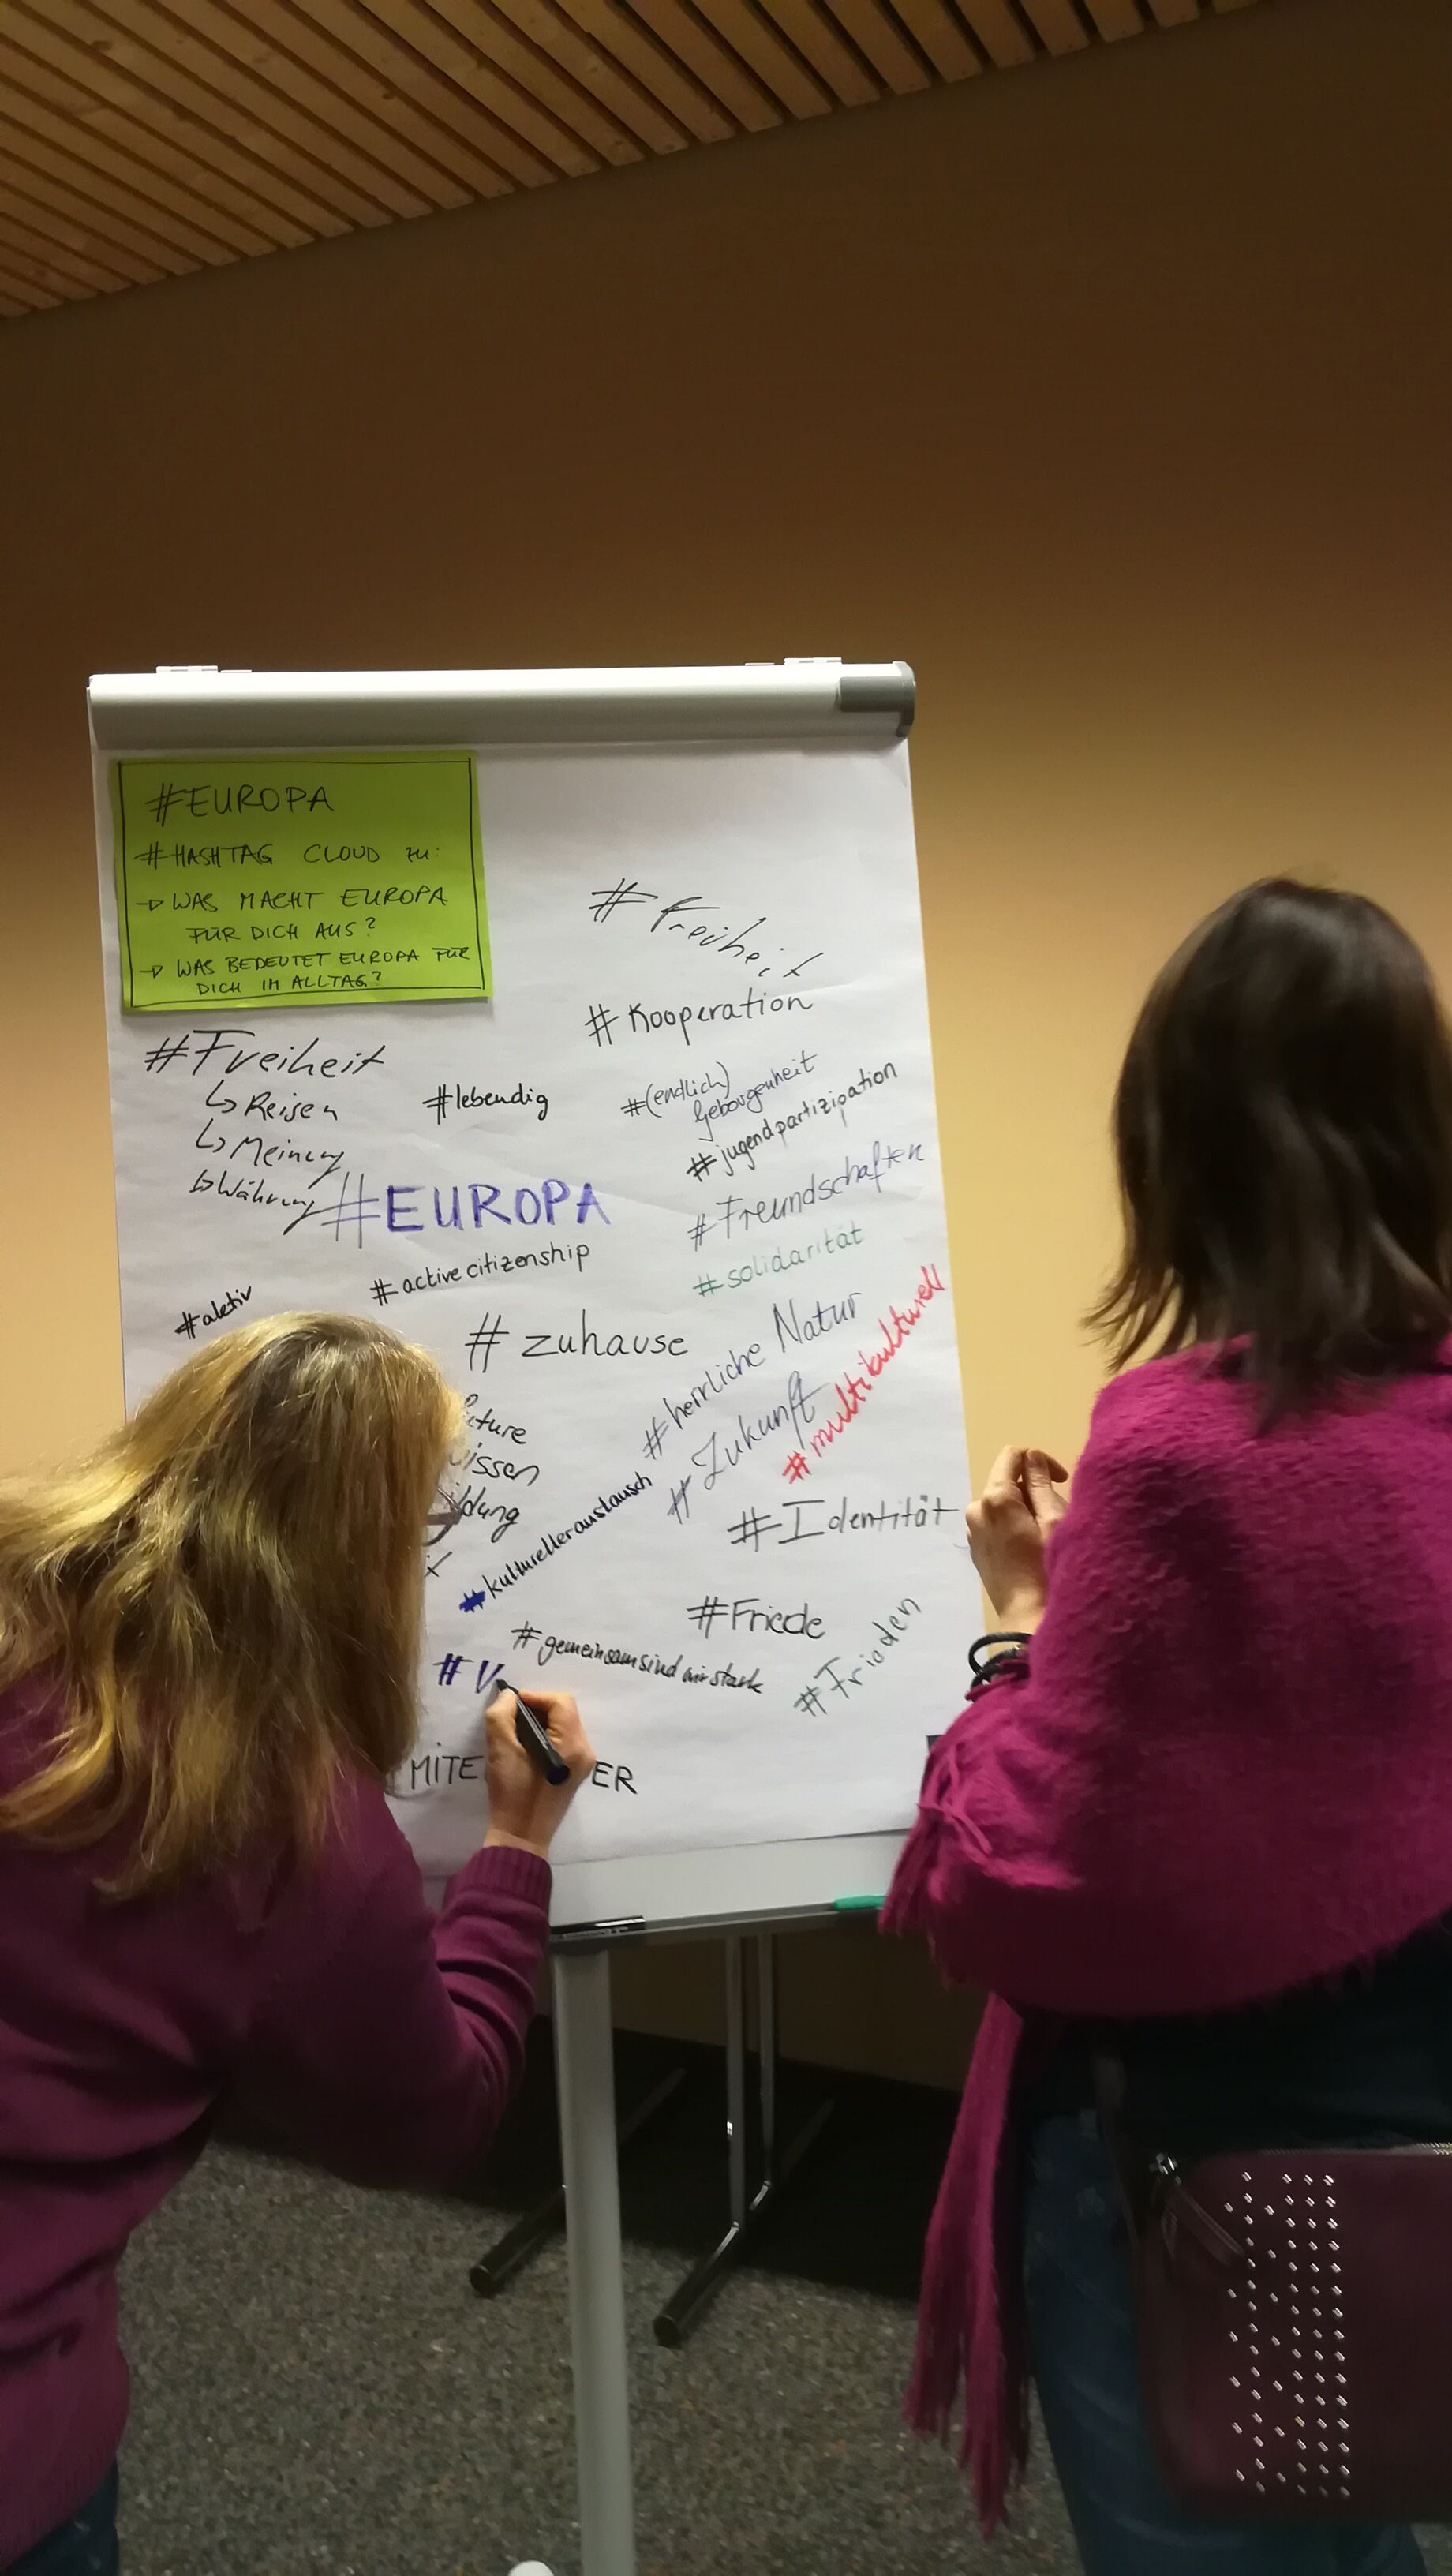 #EUROPA
#HASHTAG CLOUD zu:
→ WAS MACHT EUROPA
FÜR DICH AUS?
→ WAS BEDEUTET EUROPA FÜR
DICH IM ALLTAG?
#Freiheit
#Kooperation
#Freiheit
↳ Reisen
↳ Meinung
↳ Währung
#lebendig
#(endlich)
Geborgenheit
#jugendpartizipation
#EUROPA
#Freundschaften
#active citizenship
#solidarität
#aktiv
#zuhause
#herrliche Natur
#multikulturell
#Zukunft
#kulturelleraustausch
#Identität
#Friede
#gemeinsamsindwirstark
#Frieden
#V